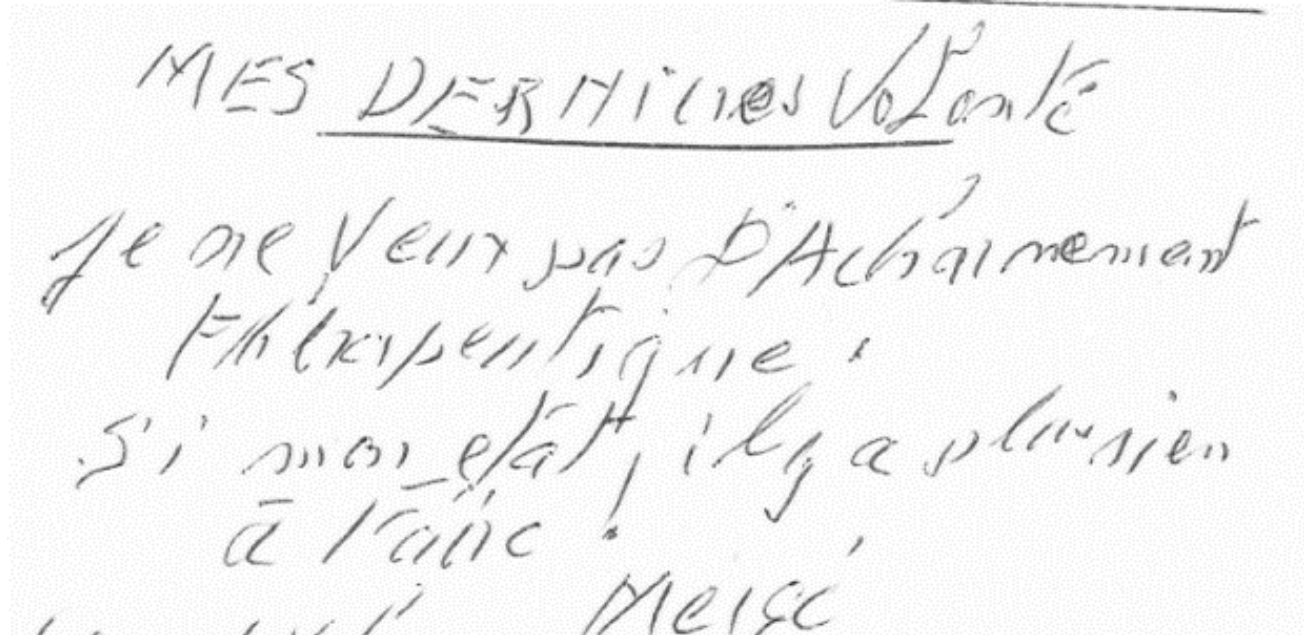 MES DERNIÈRES VOLONTÉ
Je ne Veux pas D'Acharnement
Thérapeutique.
Si mon état, il y a plus rien
à Faire !
Merçi